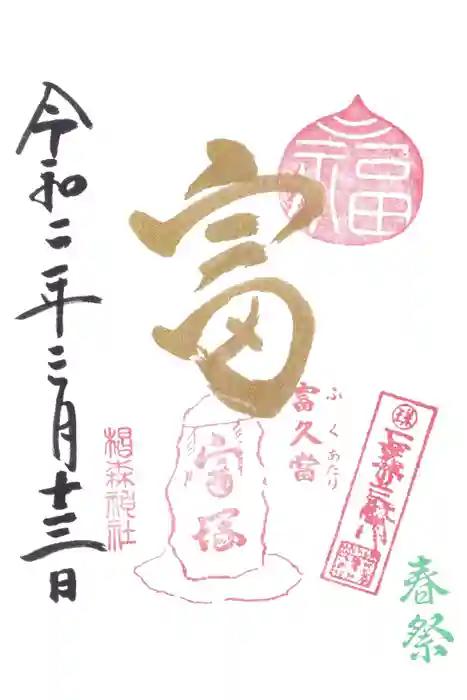 福
富
富久當
ふくあたり
富塚
椙森神社
春祭
令和二年三月十三日